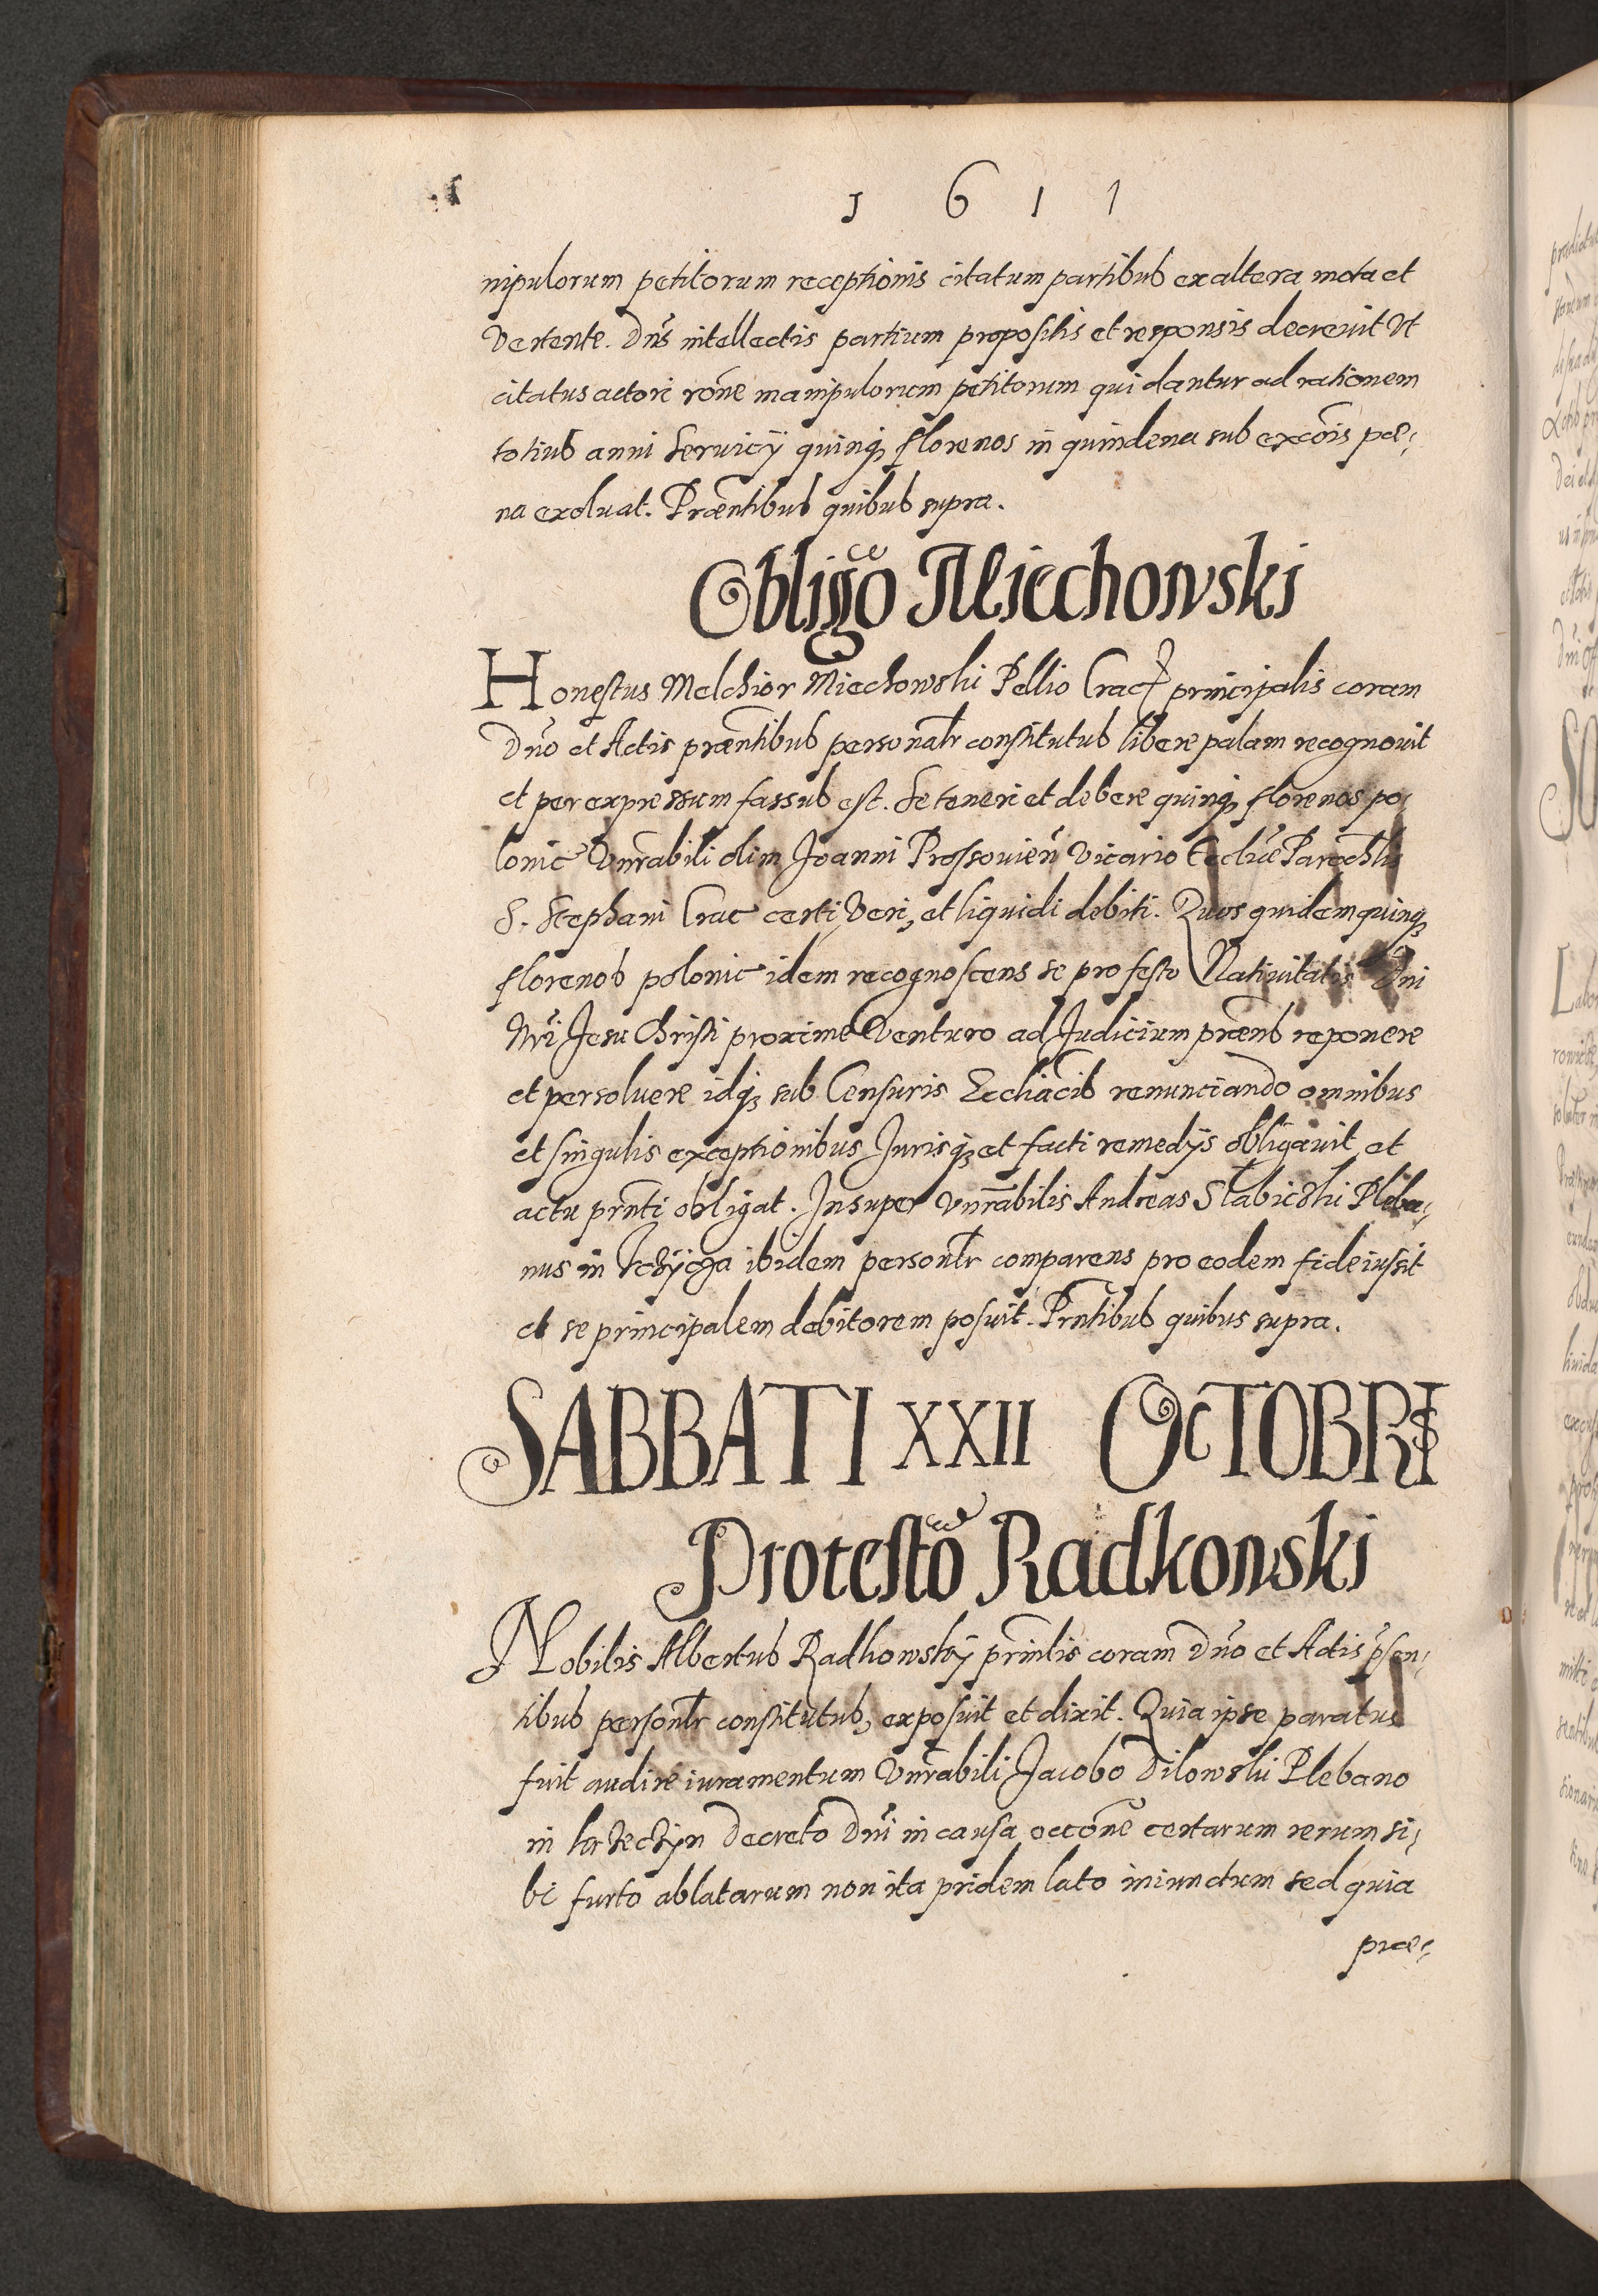 1 6 1 1
nipulorum petitorum receptionis citatum partibus ex altera mota et
Vertente. Dñs intellectis partium propositis et responsis decrevit Vt
citatus actori rõne manipulorum petitorum qui dantur ad rationem
totius anni servicÿ quinq, florenos in quindena sub excõis pœ,
na exoluat. Præntibus quibus supra.
Obligo Miechowski
Honestus Melchior Miechowski Pellio Crac principalis coram
Dño et Actis præntibus personalr constitutus libere palam recognovit
et per expressum fassus est. Se teneri et debere quinq, florenos po,
lonic Vnrabili olim Joanni Prossovień Vicario Eccliæ Parochlis
S. Stephani Crac certi, Veri, et liquidi debiti. Quos quidem quinq,
florenos polonic idem recognoscens se pro festo Natiuitatis Dni
Nri Jesu Christi proxime Venturo ad Judicium præns reponere
et persoluere idq, sub Censuris Eccliacis renunciando omnibus
et singulis exceptionibus Jurisq, et facti remedÿs obligavit et
actu prnti obligat. Insuper Vnrabilis Andreas Slabicski Pleba,
nus in ibidem personlr comparens pro eodem fideiussit
et se principalem debitorem posuit. Prntibus quibus supra.
SABBATI XXII OCTOBRIS
Protesto Radkowski
Nobilis Albertus Radkowskÿ prinlis coram Dño et Actis psen,
tibus personlr constitutus, exposuit et dixit. Quia ipse paratus
fuit audire iuramentum Vnrabili Jacobo Dilowski Plebano
in decreto Dni in causa occõne certarum rerum si,
bi furto ablatarum non ita pridem lato iniunctum sed quia
præ,